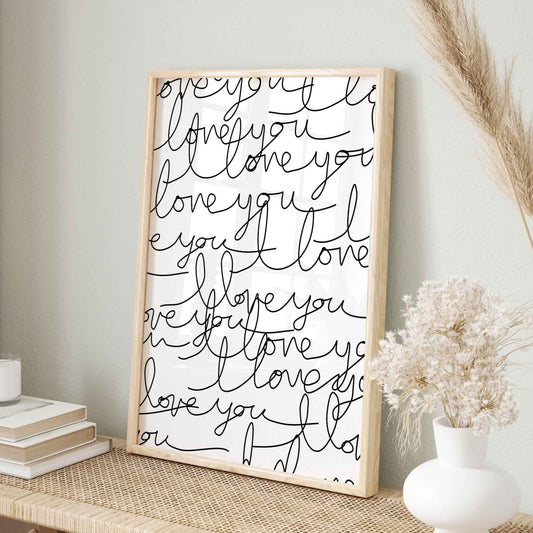 love you I l
love you
I love you
love you I
e you I love
I love you
ove you
u I love yo
I love yo
love you I love
you